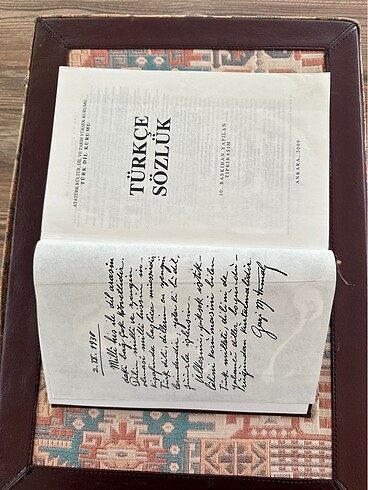 ATATÜRK KÜLTÜR, DİL VE TARİH YÜKSEK KURUMU
TÜRK DİL KURUMU
TÜRKÇE
SÖZLÜK
10. BASKIDAN YAPILAN
TIPKIBASIM
ANKARA, 2009
2. IX. 1930
Millî his ile dil arasın
daki bağ çok kuvvetlidir.
Dilin millî ve zengin
olması millî hissin in-
kişafında başlıca müessirdir.
Türk dili, dillerin en zengin
lerindendir, yeter ki bu dil,
şuurla işlensin.
Ülkesini, yüksek istik-
lâlini korumasını bilen
Türk milleti, dilini de
yabancı diller boyundu-
ruğundan kurtarmalıdır.
Gazi M. Kemal